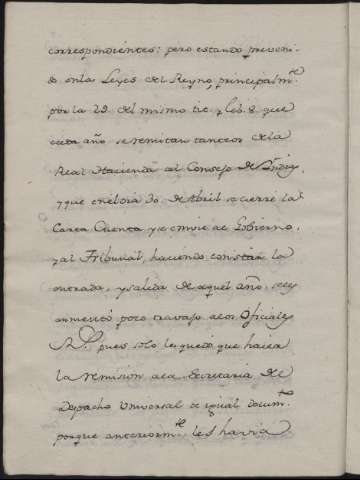 correspondientes: pero estando preveni-
do en las Leyes del Reyno, principalmte.
por la 29 del mismo tit. y lib. 8 que
cada año se remitan tanteos de la
Real Hacienda al Consejo de Yndias,
y que en el dia 30 de Abril se cierre la
Carta Cuenta y se embie al Gobierno,
y al Tribunal, haciendo constar la
entrada, y salida de aquel año, se
aumentó poco travajo a los Oficiales
Rs. pues solo les quedó que hacer
la remision a la Secretaria de
Despacho Universal de igual Documto.
porque anteriormte. les havia